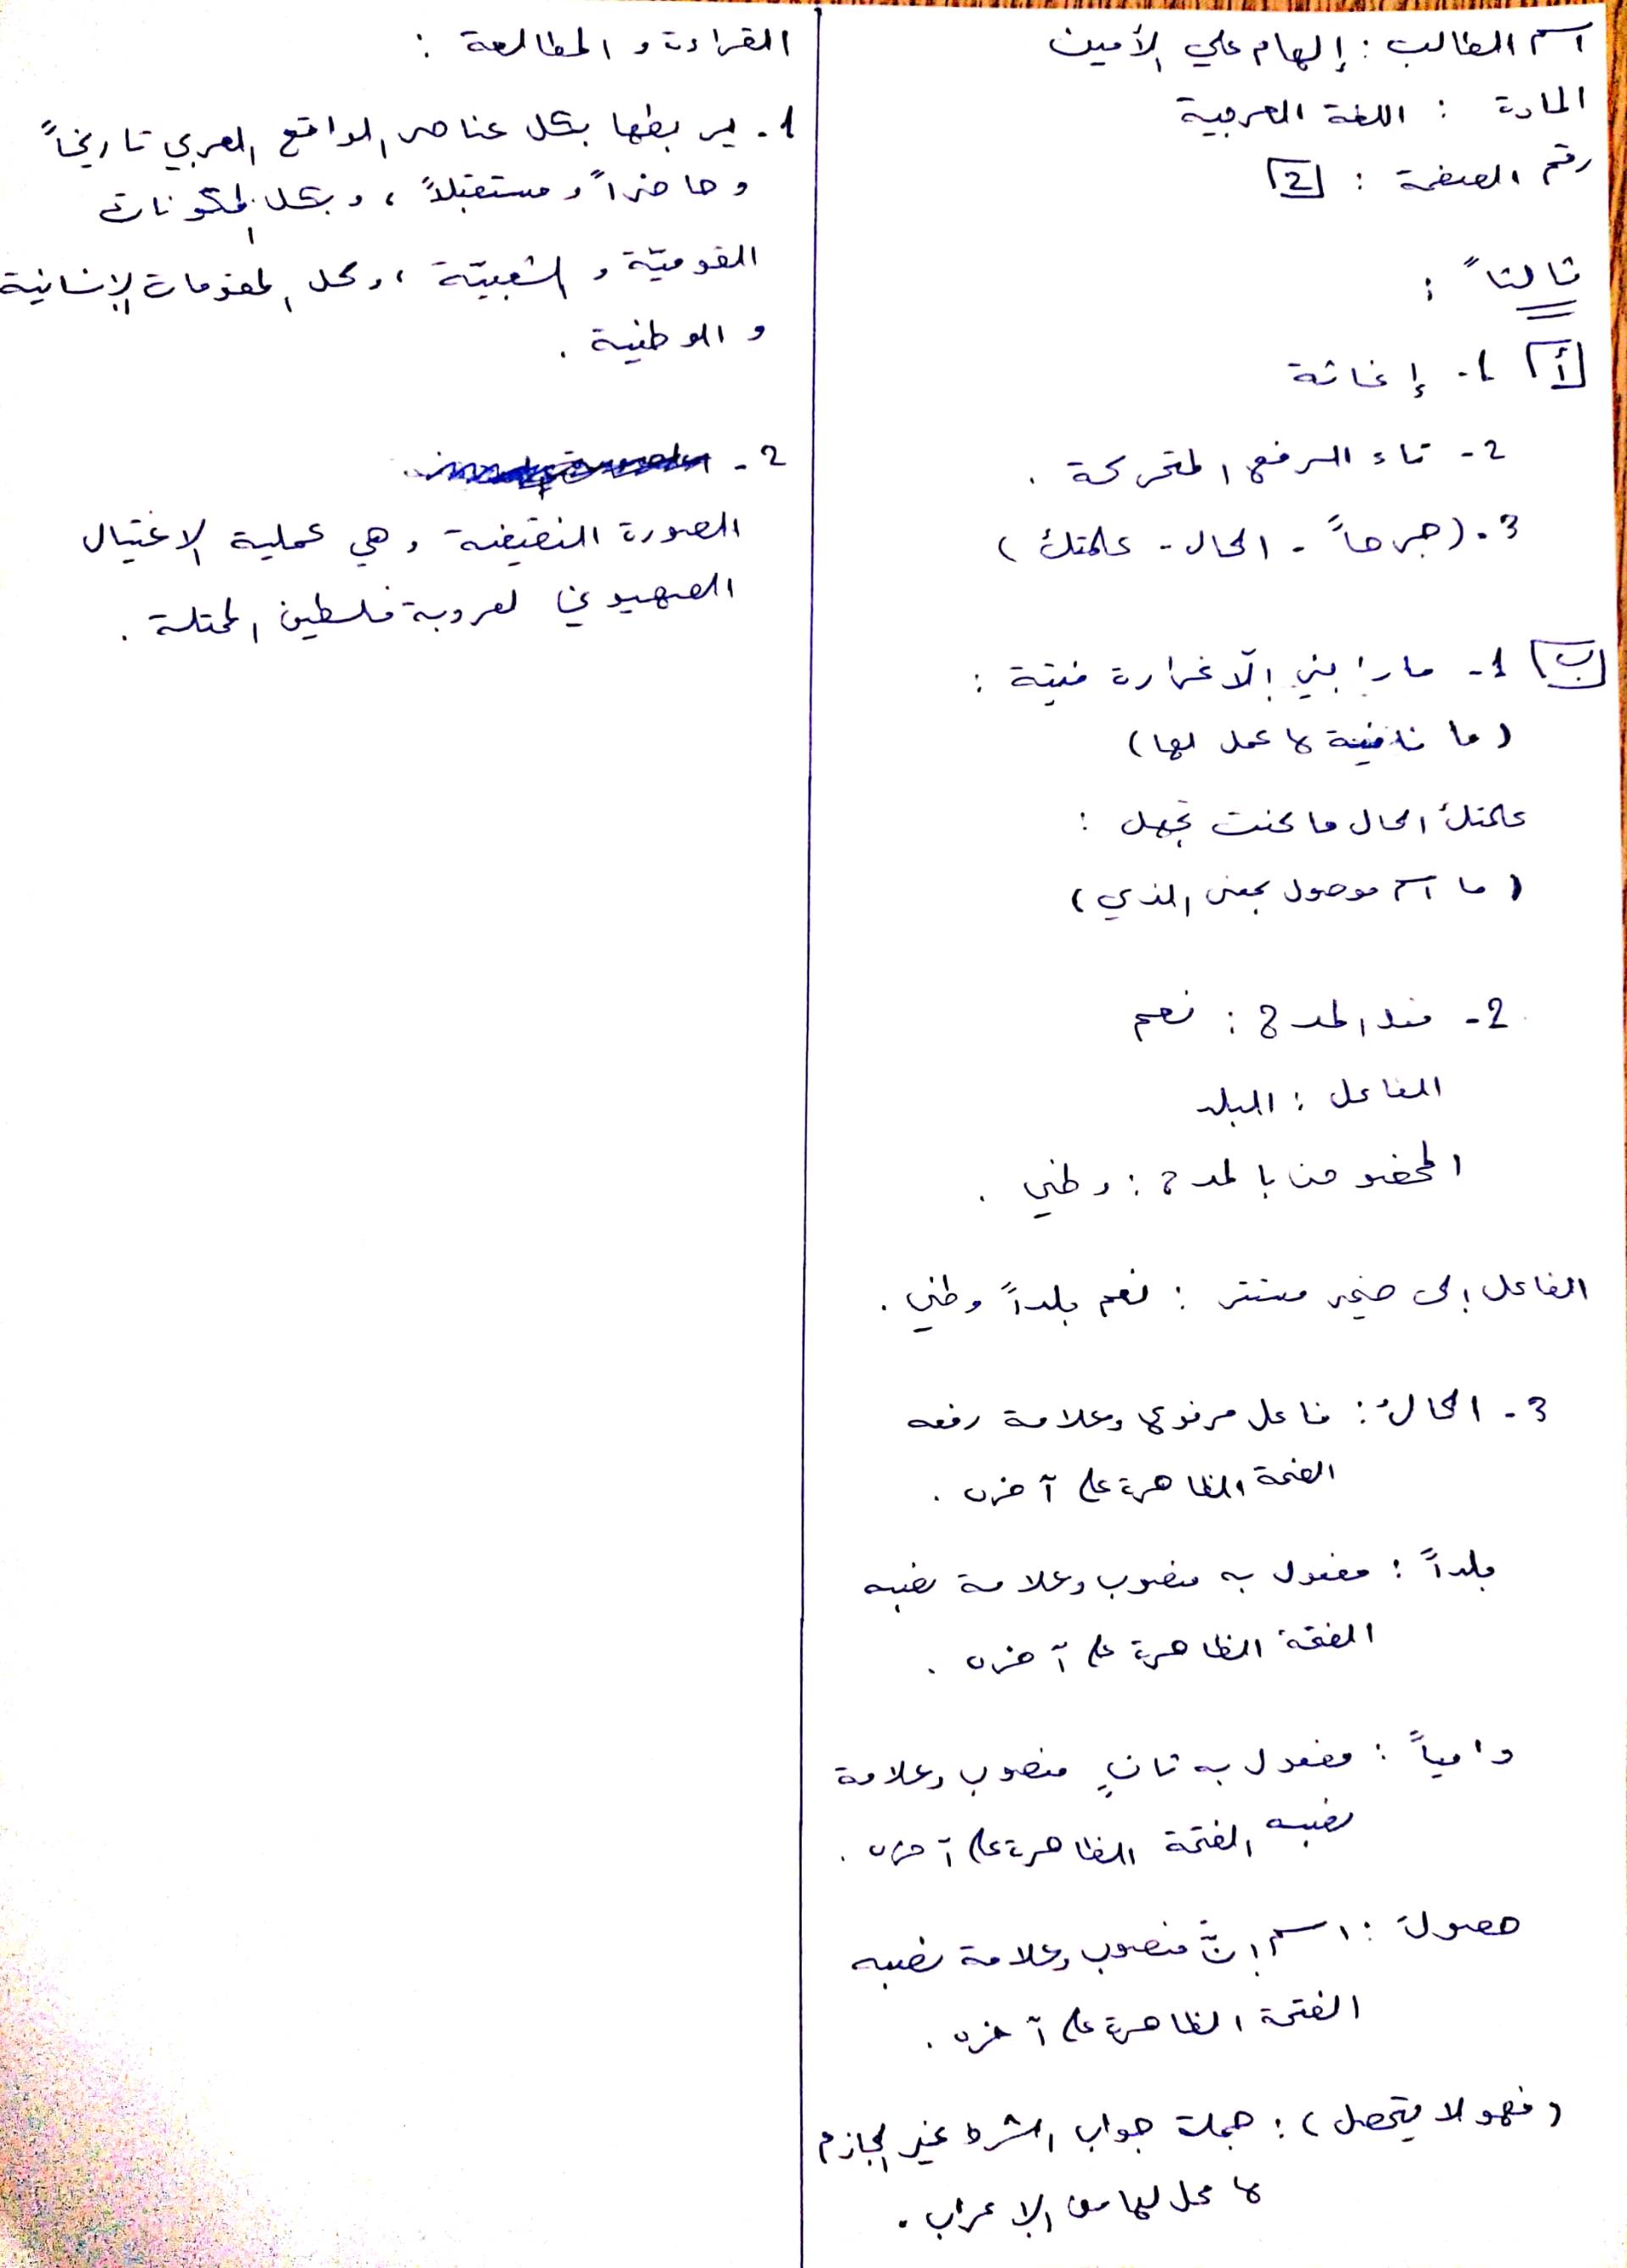 اسم الطالب : إلهام علي الأمين
المادة : اللغة العربية
رقم الصفحة : 2
ثالثاً :
أ 1- إغاثة
2- تاء الرفع المتحركة .
3. (جرحاً - الحال - علمتك )
ب 1- ما رابني إلّا غرارة فتية :
( ما نافية لا عمل لها )
علمتك الحال ما كنت تجهل :
( ما اسم موصول بمعنى الذي )
2- فعل المدح : نعم
الفاعل : البلد
المخصوص بالمدح : وطني .
الفاعل إلى ضمير مستتر : نعم بلداً وطني .
3- الحالُ : فاعل مرفوع وعلامة رفعه
الضمة الظاهرة على آخره .
بلداً : مفعول به منصوب وعلامة نصبه
الفتحة الظاهرة على آخره .
دامياً : مفعول به ثانٍ منصوب وعلامة
نصبه الفتحة الظاهرة على آخره .
حصولَ : اسم إنّ منصوب وعلامة نصبه
الفتحة الظاهرة على آخره .
( فهو لا يتحصل ) : جملة جواب الشرط غير الجازم
لا محل لها من الإعراب .
القراءة و المطالعة :
1- ليربطها بكل عناصر الواقع العربي تاريخاً
و حاضراً و مستقبلاً ، و بكل المكونات
القوميّة و الشعبيّة ، وكل المقومات الإنسانية
و الوطنية .
2-
الصورة النقيضة وهي عملية الاغتيال
الصهيوني لعروبة فلسطين المحتلة .